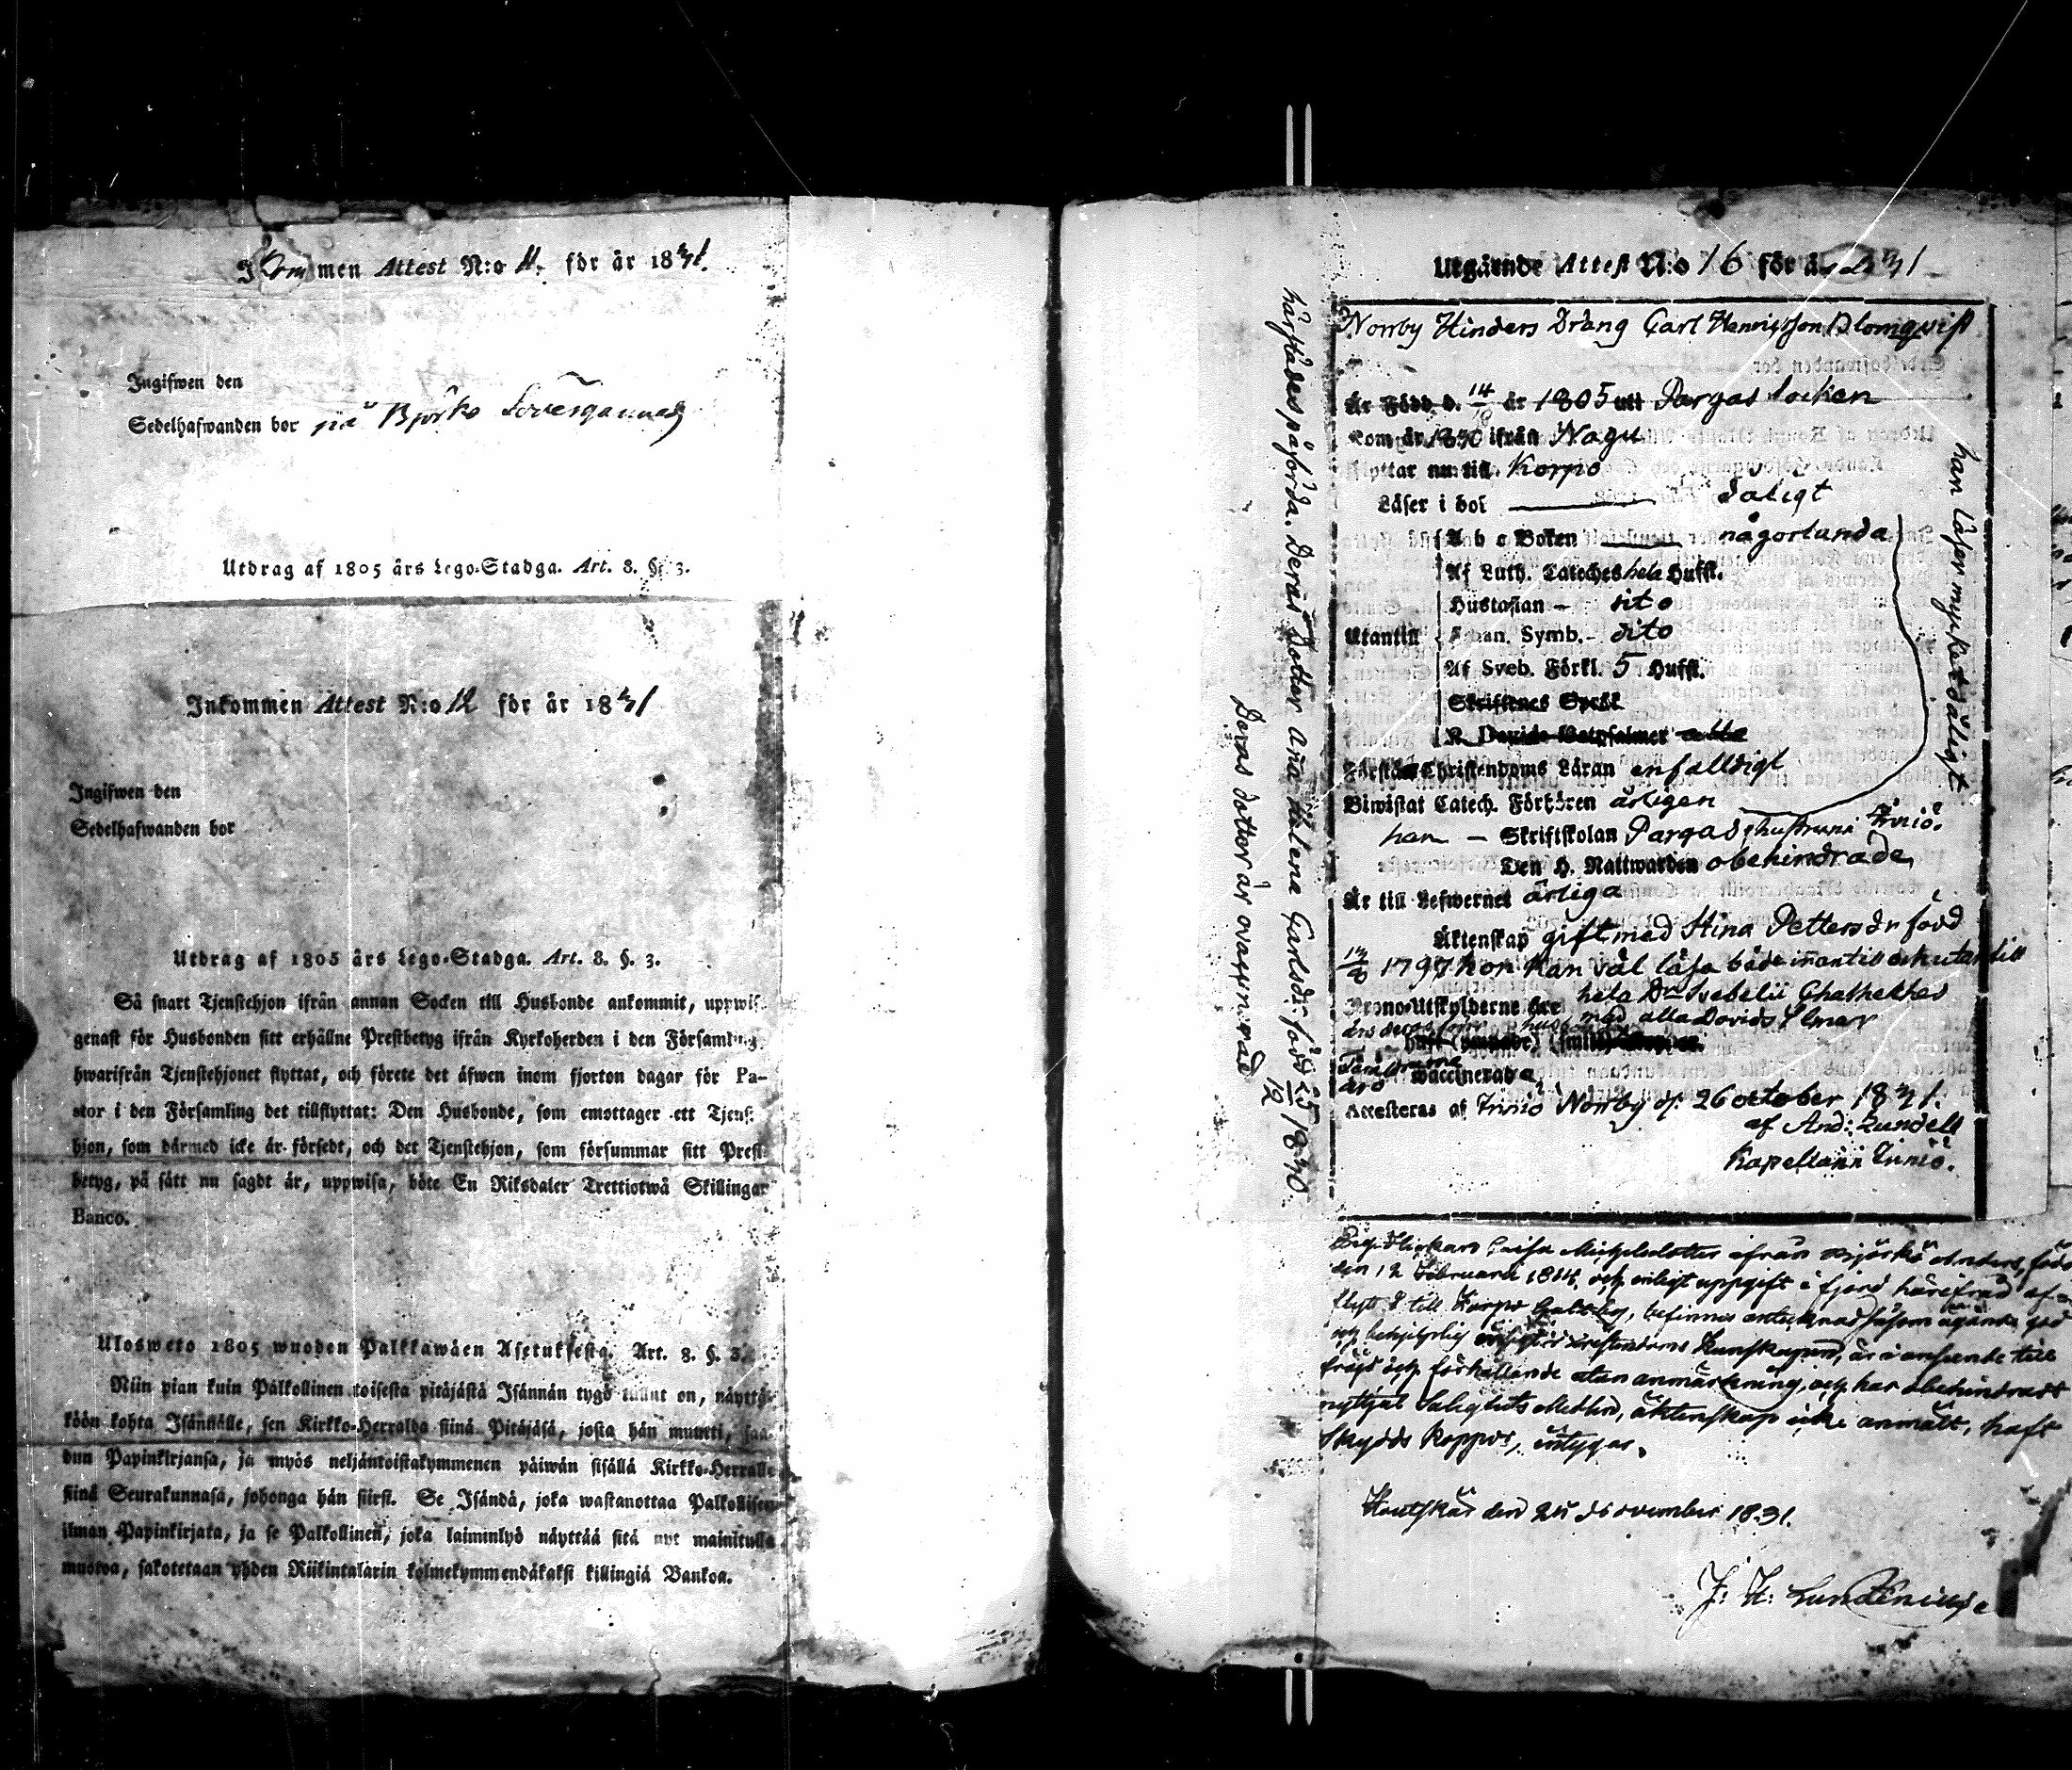 Inkommen Attest N:o 11. för år 1831.
Ingifwen den
Sedelhafwanden bor på Björkö
Utdrag af 1805 års Lego-Stadga. Art. 8. §. 3.
Inkommen Attest N:o 12 för år 1831
Ingifwen den
Sedelhafwanden bor
Utdrag af 1805 års Lego-Stadga. Art. 8. §. 3.
Så snart Tjenstehjon ifrån annan Socken till Husbonde ankommit, uppwise
genast för Husbonden sitt erhållne Prestbetyg ifrån Kyrkoherden i den Församling,
hwarifrån Tjenstehjonet flyttat, och förete det äfwen inom fjorton dagar för Pa-
stor i den Församling det tillflyttat: Den Husbonde, som emottager ett Tjenste-
hjon, som dårmed icke år försedt, och det Tjenstehjon, som försummar sitt Prest-
betyg, på sått nu sagdt år, uppwisa, böte En Riksdaler Trettiotwå Skillingar
Banco.
Ulosweto 1805 wuoden Palkkawåen Asetuksesta. Art. 8. §. 3.
Niin pian kuin Palkollinen toisesta pitåjåstå Isånnån tygö tullut on, nåyttå-
köön kohta Isånnålle, sen Kirkko-Herralda siinå Pitåjåså, josta hån muutti, saa-
dun Papinkirjansa, ja myös neljåntoistakymmenen påiwån sisållå Kirkko-Herralle
siinå Seurakunnasa, johonga hån siirsi. Se Isåndå, joka wastanottaa Palkollisen
ilman Papinkirjata, ja se Palkollinen, joka laiminlyö nåyttåå sitå nyt mainitulla
muotoa, sakotetaan yhden Riikintalarin kolmekymmendåkaksi killingiå Bankoa.
Utgårnde Attest N:o 16 för år 1831
Norrby Hinders Dräng Carl Henricsson Blomqvist
Är Född d. 14/10 år 1805 uti Pargas Socken
kom år 1830 ifrån Nagu
flyttar nu till Korpo
Läser i bok dåligt
Ab c Boken någorlunda
Af Luth. Cateches hela Hufst.
Hustaflan - dito
Utantill Athan. Symb. - dito
Af Sveb. Förkl. 5 Hufst.
Skriftenes Språk
K. Davids Botpsalmer
Förstår Christendoms Läran enfalldigt
Biwistat Catech. Förhören årligen
han - Skriftskolan Pargas, hustrun i Iniö.
Den H. Nattwarden obehindrade
Är till Lefwernet ärliga
Äktenskap gift med Stina Pettersdr född
1797 hon kan väl läsa både innantill och utantill
Krono-Utskylderne äro hela Dr Svebelii Chathekes
med alla Davids
äro Vaccinerade
Attesteras af Iniö Norrby d. 26 october 1831.
af And: Lundell
Kapellan i Iniö.
han läser mycket dåligt
härstädes påförda. Deras Dotter Anna Helena Carlsdr: född 25/12 1830.
Deras dotter är ovaccinerad
Pigo Flickan Caisa Michelsdotter ifrån Björkö Anders, född
den 12 Februarii 1814, och enligt uppgift i fjord härifrån af-
flytt till Korpo Galtby, befinnes antecknad såsom ägande god
och behjelplig insigt i christendoms kunskapen, är i anseende till
fräjd och förhållande utan anmärkning, och har obehindradt
nyttjat Salighets Medlen, äktenskap icke anmält, haft
Skydds koppor, intygar.
Houtskär den 24 November 1831.
J: H: Lundenius